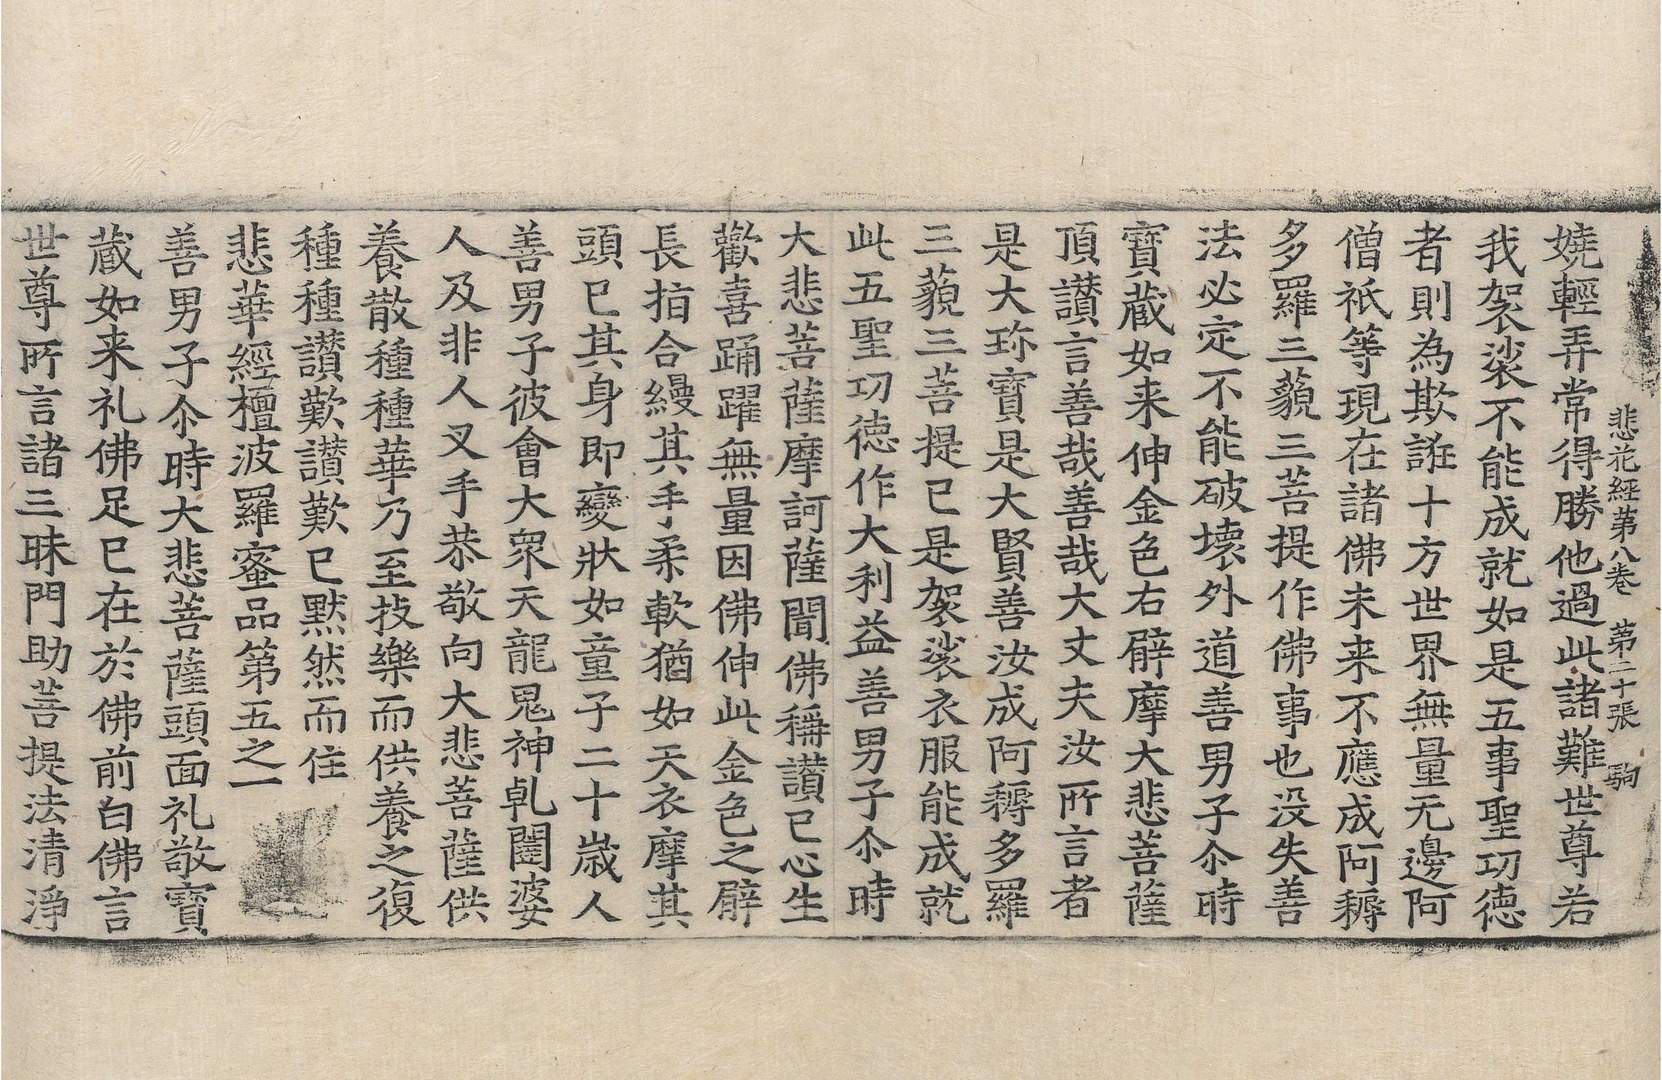 悲花經第八卷 第二十張 駒
嬈輕弄常得勝他過此諸難世尊若
我袈裟不能成就如是五事聖㓛德
者則為欺誑十方世界無量无邊阿
僧祇等現在諸佛未来不應成阿耨
多羅三藐三菩提作佛事也没失善
法必定不能破壞外道善男子尒時
寶藏如来伸金色右臂摩大悲菩薩
頂讃言善哉善哉大丈夫汝所言者
是大珎寶是大賢善汝成阿耨多羅
三藐三菩提已是袈裟衣服能成就
此五聖㓛德作大利益善男子尒時
大悲菩薩摩訶薩聞佛稱讃已心生
歡喜踊躍無量因佛伸此金色之臂
長指合縵其手柔軟猶如天衣摩其
頭已其身即變狀如童子二十歲人
善男子彼會大衆天龍鬼神乹闥婆
人及非人叉手恭敬向大悲菩薩供
養散種種華乃至技樂而供養之復
種種讃歎讃歎已默然而住
悲華經檀波羅蜜品第五之一
善男子尒時大悲菩薩頭面礼敬寶
藏如来礼佛足已在於佛前白佛言
世尊所言諸三昧門助菩提法清淨